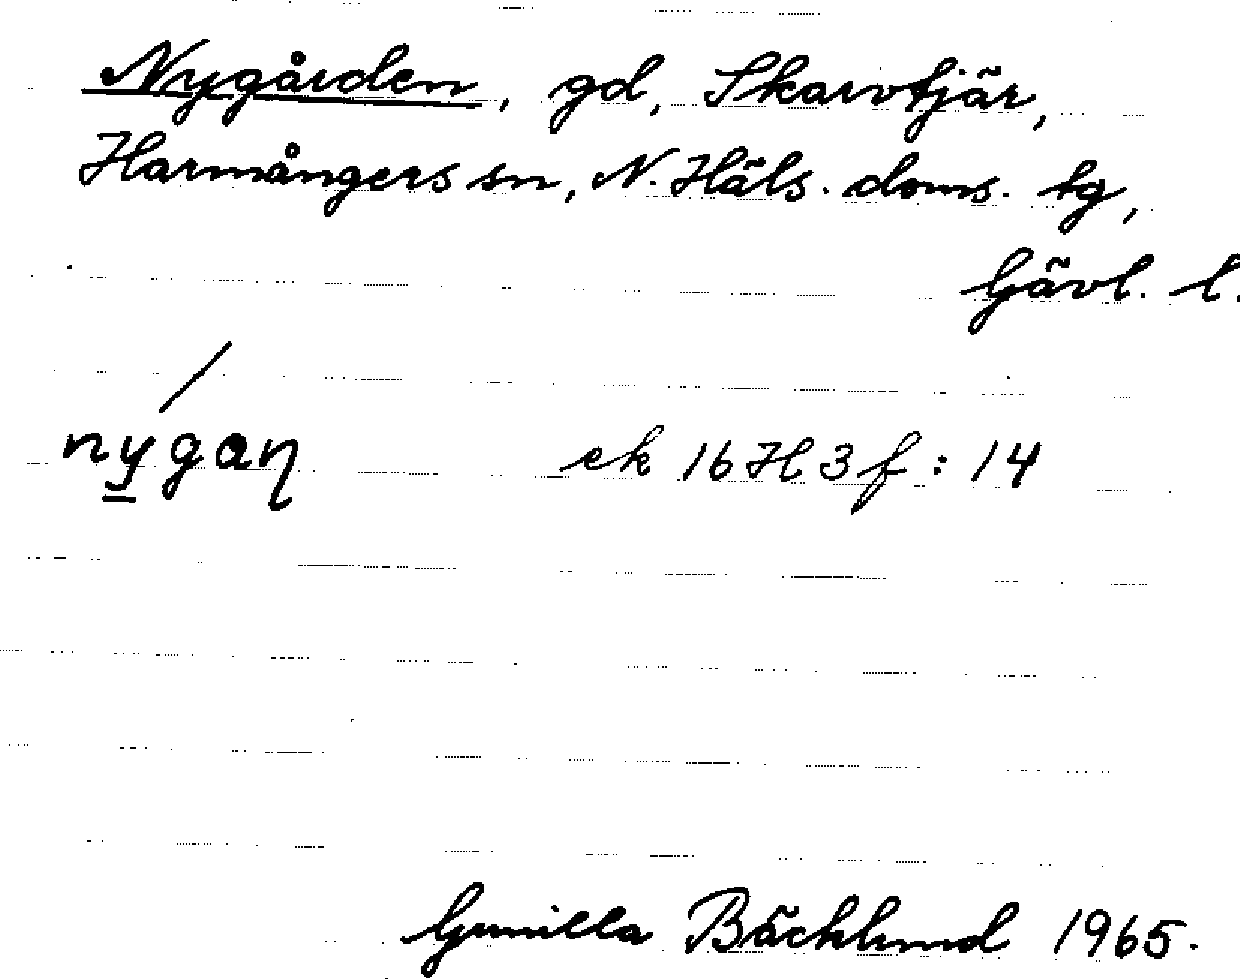 Nygården, gd, Skarvtjär,
Harmångers sn, N. Häls. doms. tg,
Gävl. l.
nygaη ek 16H3f:14
Gunilla Bäcklund 1965.